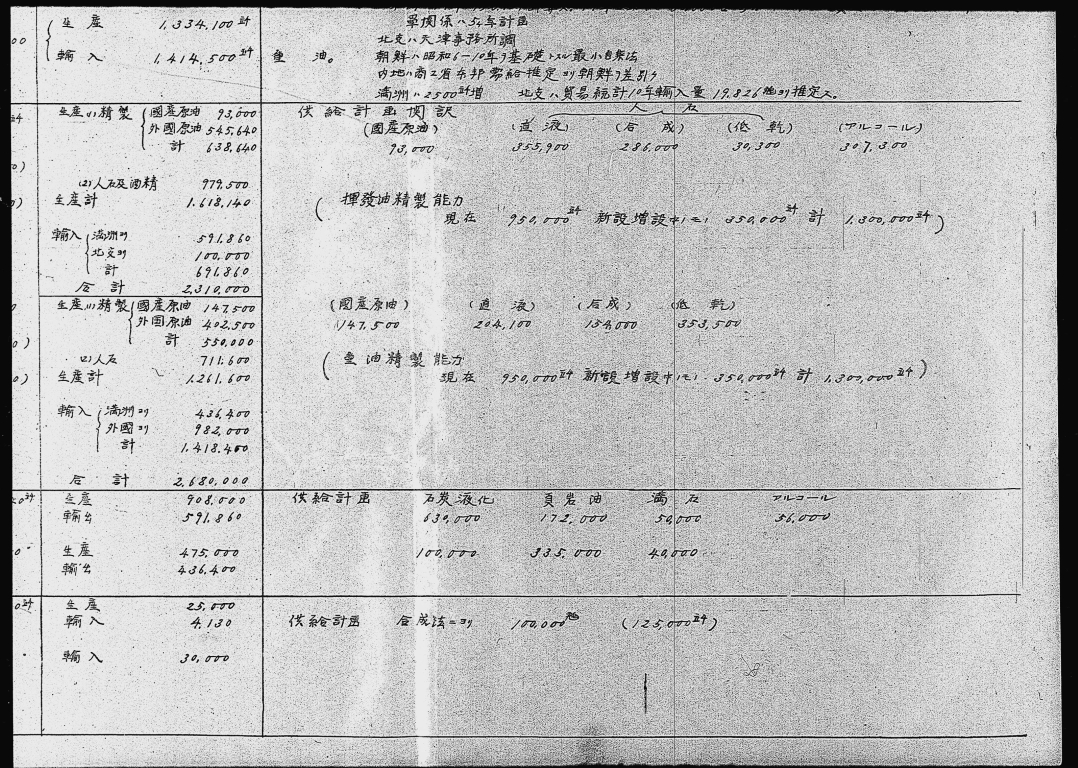 生産 1,334,100竏
輸入 1,414,500竏
軍関係ハ5ヶ年計画
北支ハ天津事務所調
重油。 朝鮮ハ昭和6—10年ヲ基礎トスル最小自乗法
内地ハ商工省本邦需給推定ヨリ朝鮮ヲ差引ク
満洲ハ2500竏増 北支ハ貿易統計10年輸入量 19.826瓲ヨリ推定ス。
生産(1)精製 國産原油 93,000
外國原油 545,640
計 638,640
(2)人石及酒精 979,500
生産計 1,618,140
輸入 満洲ヨリ 591,860
北支ヨリ 100,000
計 691,860
合計 2,310,000
供給計画内訳 人石
(國産原油) (直液) (合成) (低乾) (アルコール)
93,000 355,900 286,000 30,300 307,300
(揮發油精製能力
現在 950,000竏 新設増設中ノモノ 350,000竏 計 1,300,000竏)
生産(1)精製 國産原油 147,500
外国原油 402,500
計 550,000
(2)人石 711,600
生産計 1,261,600
輸入 満洲ヨリ 436,400
外國ヨリ 982,000
計 1,418,400
合計 2,680,000
(國産原油) (直液) (合成) (低乾)
147,500 204,100 154,000 353,500
(重油精製能力
現在 950,000竏 新設増設中ノモノ 350,000竏 計 1,300,000竏)
生産 908,000
輸出 591,860
生産 475,000
輸出 436,400
供給計画 石炭液化 頁岩油 満石 アルコール
630,000 172,000 50,000 56,000
100,000 335,000 40,000
生産 25,000
輸入 4,130
輸入 30,000
供給計画 合成法ニヨリ 100,000瓲 (125,000竏)